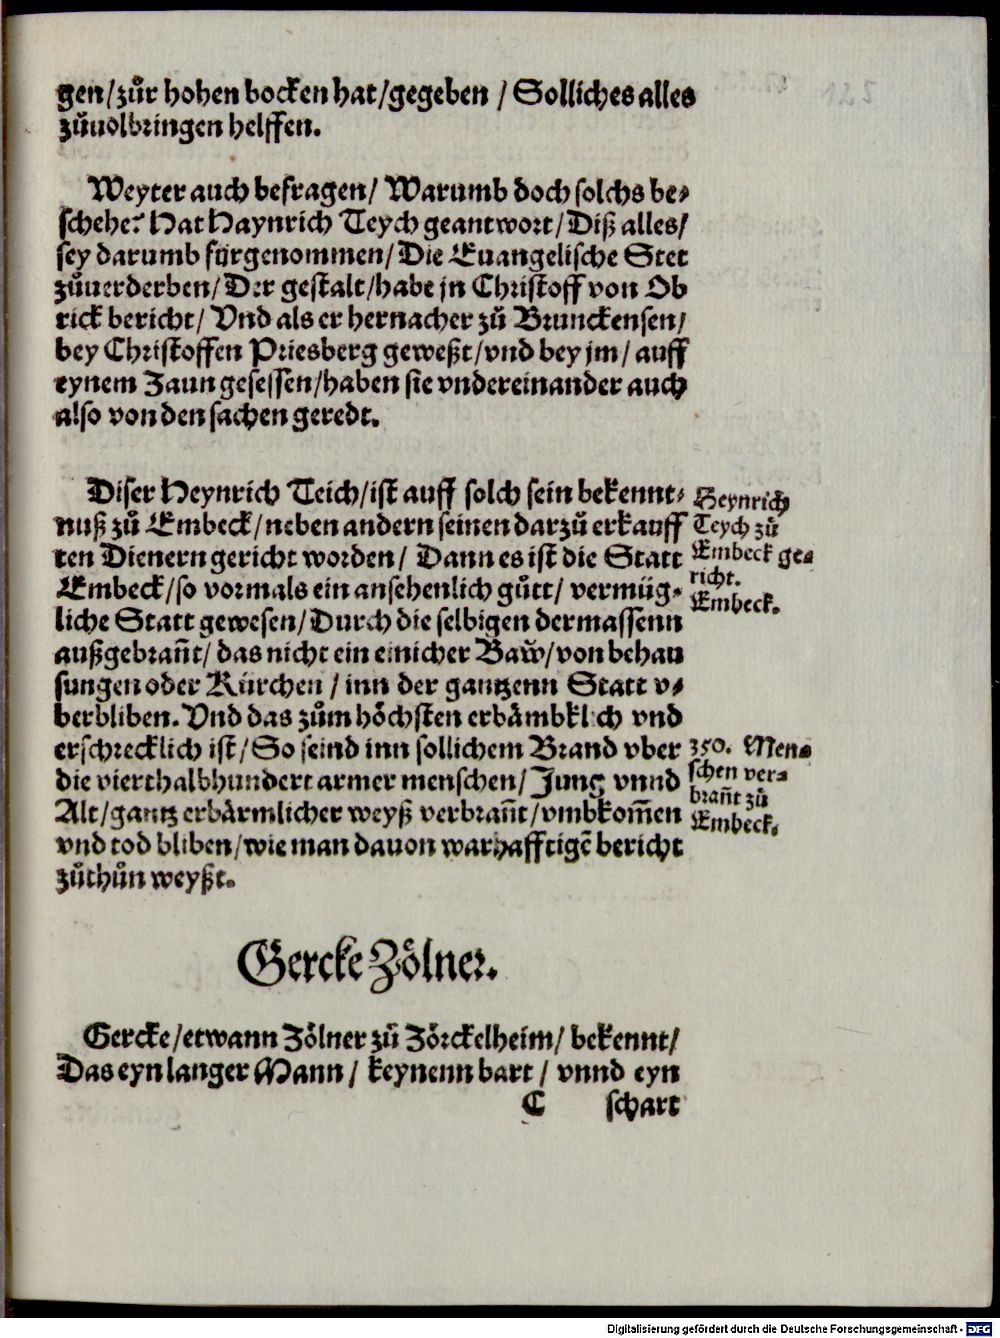 gen/zůr hohen bocken hat/gegeben / Solliches alles
zůuolbringen helffen.
Weyter auch befragen/ Warumb doch solchs be⸗
schehe? Hat Haynrich Teych geantwort/ Diß alles/
sey darumb fürgenommen/ Die Euangelische Stet
zůuerderben/ Der gestalt/habe jn Christoff von Ob
rick bericht/ Vnd als er hernacher zů Brunckensen/
bey Christoffen Priesberg geweßt/vnd bey jm/ auff
eynem Zaun gesessen/haben sie vndereinander auch
also von den sachen geredt.
Diser Heynrich Teich/ist auff solch sein bekennt⸗
nuß zů Embeck/neben andern seinen darzů erkauff
ten Dienern gericht worden/ Dann es ist die Statt
Embeck/so vormals ein ansehenlich gůtt/ vermüg⸗
liche Statt gewesen/Durch die selbigen dermassenn
außgebrañt/ das nicht ein einicher Baw̌/von behau
sungen oder Kürchen / inn der gantzenn Statt v⸗
berbliben. Vnd das zům höchsten erbämbklich vnd
erschrecklich ist/ So seind inn sollichem Brand vber
die vierthalbhundert armer menschen/ Jung vnnd
Alt/gantz erbärmlicher weyß verbrañt/vmbkom̃en
vnd tod bliben/wie man dauon warhafftigẽ bericht
zůthůn weyßt.
Heynrich
Teych zů
Embeck ge⸗
richt.
Embeck.
350. Men⸗
schen ver⸗
brañt zů
Embeck.
Gercke Zölner.
Gercke/etwann Zölner zů Zörckelheim/ bekennt/
Das eyn langer Mann/ keynenn bart / vnnd eyn
C schart
Digitalisierung gefördert durch die Deutsche Forschungsgemeinschaft - DFG